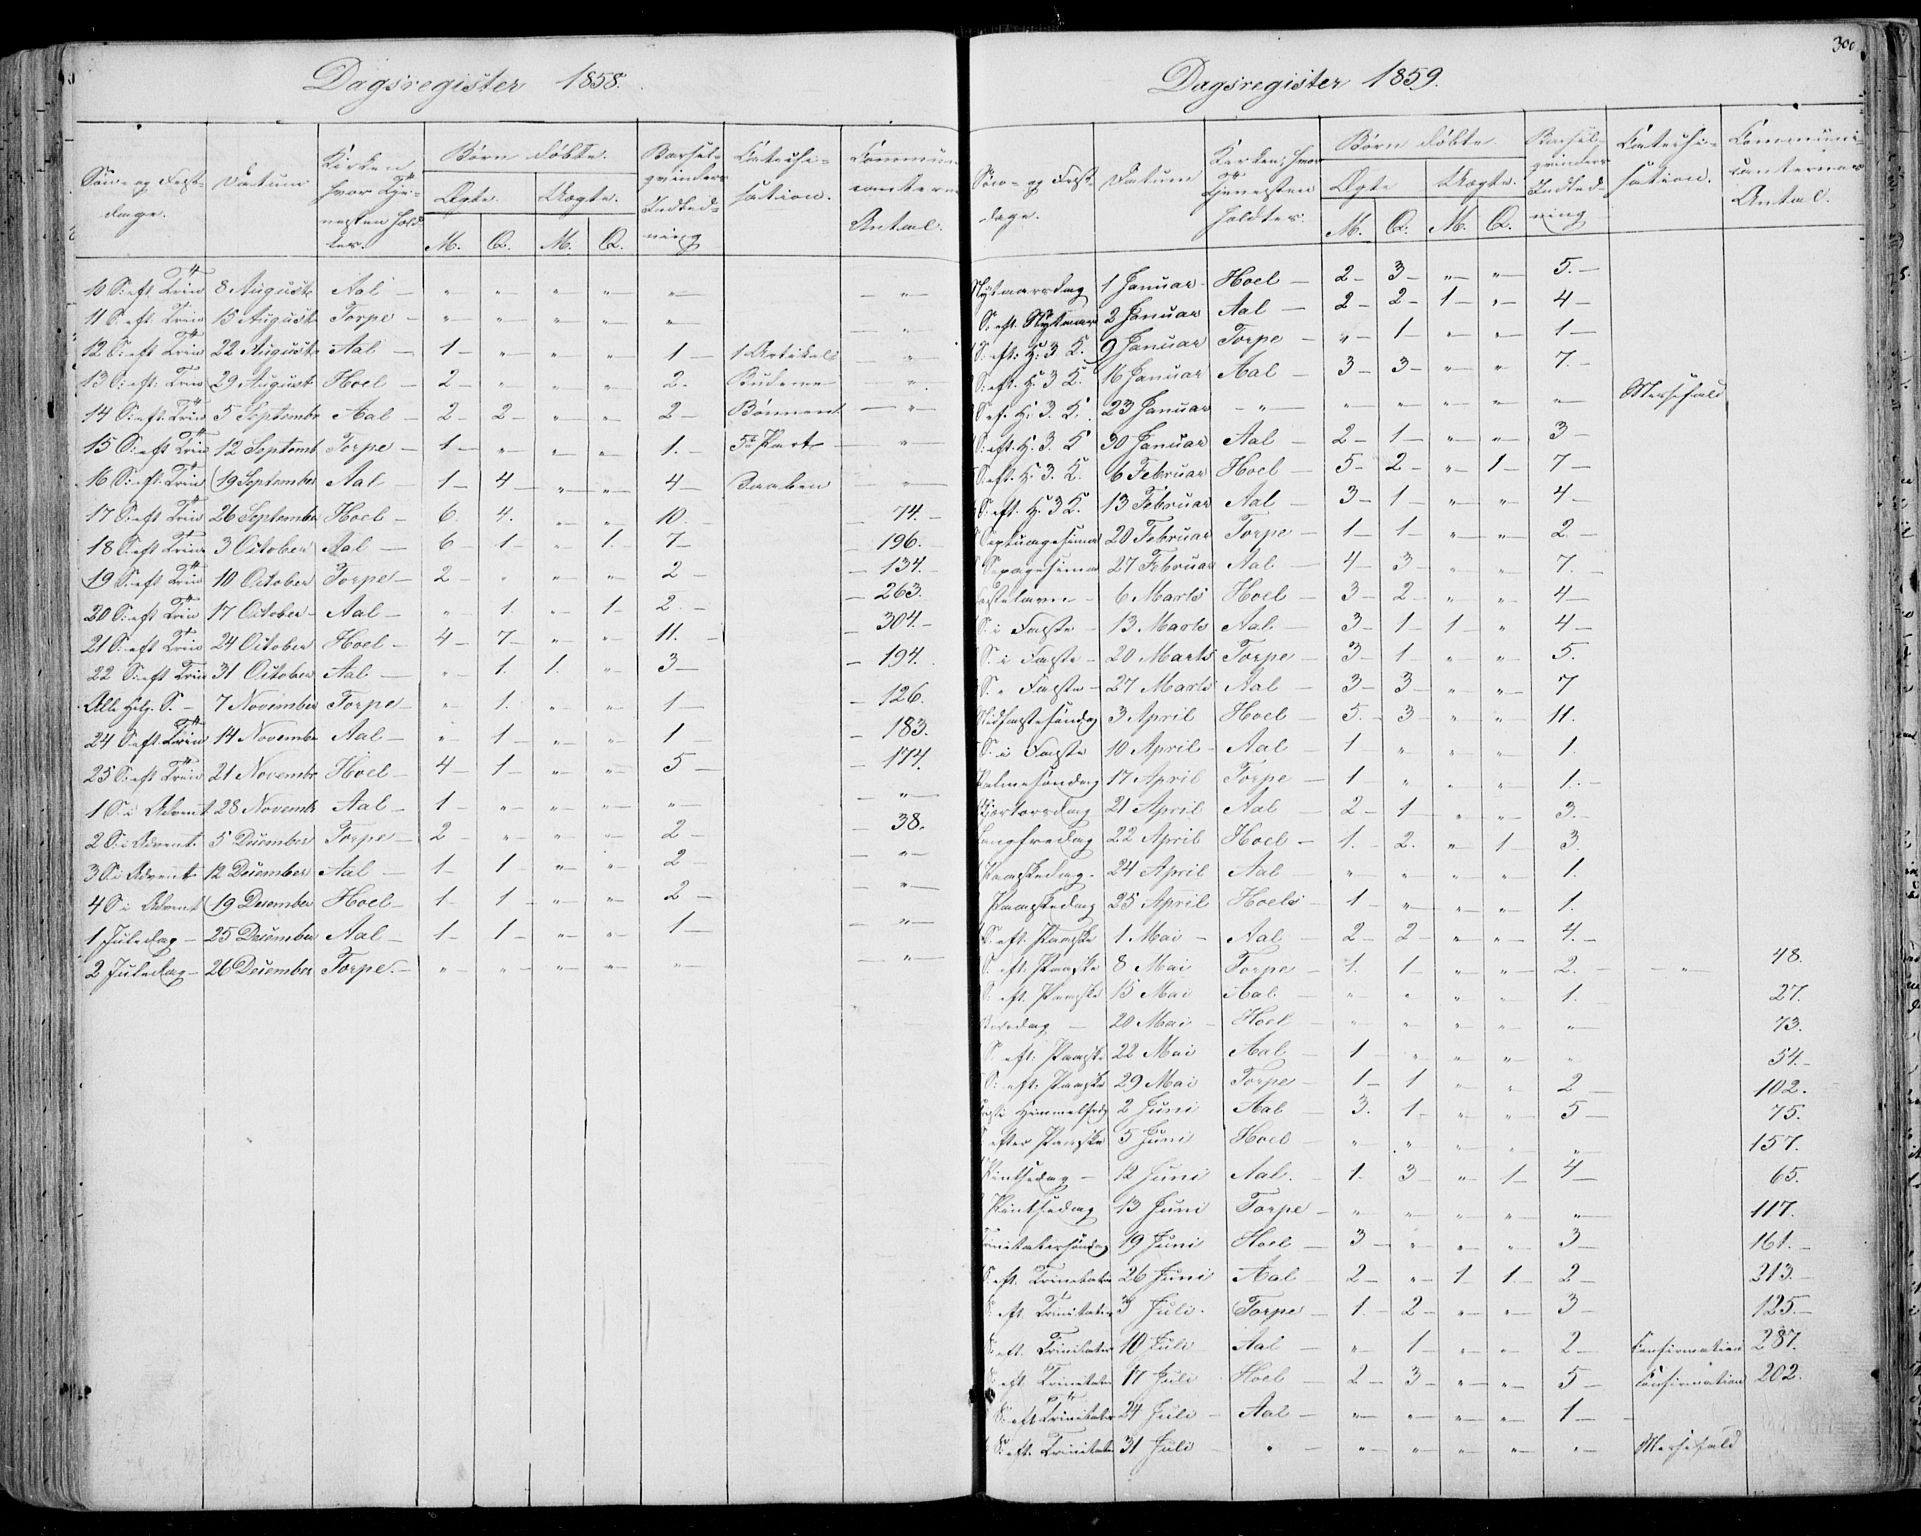 300
Dagsregister 1858.
Søn- og Fest-dage. | Datum | Kirken hvor Tje-nesten hold-tes. | Børn døbte. Ægte. M. Q. Uægte. M. Q. | Barsel-qvinders Indled-ning | Catechi-sation. | Antal.
10 S: eft Trin | 8 August | Aal | " | " | " | " | " | | "
11 S: eft. Trin | 15 August | Torpe | " | " | " | " | " | | "
12 S: eft Trin | 22 August | Aal | 1 | " | " | " | 1 | 1 Artikel | "
13 S: eft: Trin | 29 August | Hoel | 2 | " | " | " | 2. | Budene | "
14 S: eft: Trin | 5 Septembr | Aal | 2 | 2 | " | " | 2 | Bønnen | "
15 S: eft Trin | 12 Septemb | Torpe | 1 | " | " | " | 1. | 5te Part | "
16 S: eft. Trin | 19 September | Aal | 1 | 4 | " | " | 4 | Daaben | "
17 S: eft Trin | 26 Septembr | Hoel | 6 | 4. | " | " | 10. | | 74.
18 S: eft Trin | 3 October | Aal | 6 | 1 | " | 1. | 7 | | 196.
19 S: eft Trin | 10 October | Torpe | 2 | " | " | " | 2 | | 134.
20 S: eft Trin | 17 October | Aal | " | 1. | " | 1. | 2. | | 263.
21 S: eft Trin | 24 October | Hoel | 4 | 7 | " | " | 11. | | 304.
22 S: eft Trin | 31 October | Aal | " | 1. | 1. | " | 3 | | 194.
Alle Helg. S. | 7 November | Torpe | " | 1. | " | " | 1 | | 126.
24 S: eft Trin | 14 Novembr | Aal | " | 1 | " | " | 1 | | 183.
25 S: eft Trin | 21 Novembr | Hoel | 4 | 1 | " | " | 5 | | 174.
1 S: i Advent | 28 Novembr | Aal | 1 | " | " | " | " | | "
2 S: i Advent | 5 December | Torpe | 2 | " | " | " | 2 | | 38.
3 S: i Advent | 12 December | Aal | 1 | 1 | " | " | 2 | | "
4 S: i Advent | 19 December | Hoel | 1 | 1 | " | " | 2 | | "
1 Juledag | 25 December | Aal | 1 | 1 | " | " | 1 | | "
2 Juledag | 26 December | Torpe. | " | " | " | " | " | | "
Dagsregister 1859.
Søn- og Fest-dage. | Datum | Kirken, hvor Tjenesten holdtes. | Børn døbte. Ægte M. Q. Uægte. M. Q. | Barsel-qvinders Indled-ning | Catechi-sation. | Communi-canternes Antal.
Nytaarsdag | 1 Januar | Hoel | 2 | 3 | " | " | 5.
S. eft. Nytaar | 2 Januar | Aal | 2 | 2 | 1 | " | 4
S: eft: H. 3 K. | 9 Januar | Torpe | " | 1 | " | " | 1
S: eft. H. 3 K. | 16 Januar | Aal | 3 | 3 | " | " | 7.
S. ef. H. 3. K. | 23 Januar | " | " | " | " | " | " | Messefald
S: eft. H. 3. K | 30 Januar | Aal | 2 | 1 | " | " | 3
S. eft. H. 3. K. | 6 Februar | Hoel | 5 | 2 | " | 1 | 7
S. eft. H. 3 K. | 13 Februar | Aal | 3 | 1 | " | " | 4
Septuagesima | 20 Februar | Torpe | 1 | 1 | " | " | 2.
Sexagesima | 27 Februar | Aal | 4 | 3 | " | " | 7.
Fastelavn | 6 Marts | Hoel | 3 | 2 | " | " | 4
S. i Faste | 13 Marts | Aal. | 3 | 1 | 1 | " | 4
S. i Faste | 20 Marts | Torpe | 3 | 1 | " | " | 5.
S. i Faste | 27 Marts | Aal | 3 | 3 | " | " | 7
Midfastesøndag | 3 April | Hoel | 5. | 3 | " | " | 11.
S. i Faste | 10 April | Aal | 1 | " | " | " | 1.
Palmesøndag | 17 April | Torpe | 1 | " | " | " | 1.
Skjertorsdag | 21 April | Aal | 2 | 1 | " | " | 3.
Langfredag | 22 April | Hoel | 1. | 2. | " | 1 | 3.
Paaskedag | 24 April | Aal | " | " | " | " | 1.
Paaskedag | 25 April | Hoels | 1 | " | " | " | 1.
S. eft. Paaske | 1 Mai | Aal | 2 | 2 | " | " | 4.
S. eft. Paaske | 8 Mai | Torpe | 1. | 1 | " | " | 2. | " | 48.
S: eft. Paaske | 15 Mai | Aal. | " | " | " | " | 1. | | 27.
Bededag | 20 Mai | Hoel | " | " | " | " | " | | 73.
S. eft: Paaske | 22 Mai | Aal | 1 | " | " | " | " | | 54.
S: eft: Paaske | 29 Mai | Torpe | 1 | 1 | " | " | 2 | | 102.
Christi Himmelfrd | 2 Juni | Aal | 3. | 1 | " | " | 5 | | 75.
S efter Paaske | 5 Juni | Hoel | " | " | " | " | " | | 157.
Pintsedag | 12 Juni | Aal. | 1. | 3 | " | 1 | 4 | | 65.
Pintsedag | 13 Juni | Torpe | " | " | " | " | " | | 117.
Trinitatissøndag | 19 Juni | Hoel | 3 | " | " | " | 3 | | 161.
S eft. Trinitatis | 26 Juni | Aal | 2 | " | 1 | 1. | 2 | | 213.
S. eft Trinitatis | 3 Juli. | Torpe | 1 | 2 | " | " | 3 | | 125.
S: eft. Trinitatis | 10 Juli | Aal | " | 1 | " | " | 2 | Confirmation | 287.
S: eft Trinitatis | 17 Juli | Hoel | 2 | 3 | " | " | 5 | Confirmation | 202.
S: eft Trinitatis | 24 Juli | Aal | " | " | " | " | 1
S: eft. Trinitatis | 31 Juli | " | " | " | " | " | " | Messefald